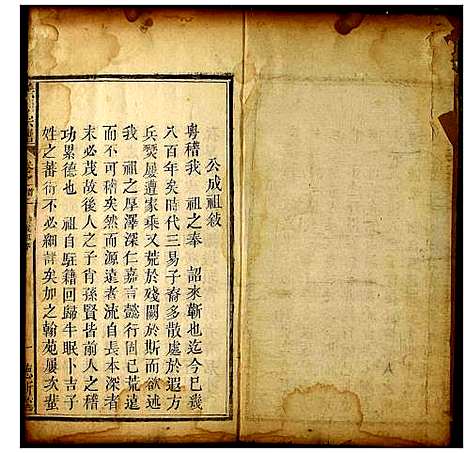 公成祖敘
粵稽我　祖之奉　詔來蘄也迄今已幾
八百年矣時代三易子裔多散處於遐方
兵燹屢遭家乘又荒於殘闕於斯而欲述
我　祖之厚澤深仁嘉言懿行固已荒遠
而不可稽矣然而源遠者流自長本深者
末必茂故後人之子肖孫賢皆前人之積
功累德也　祖自駐籍回歸牛眠卜吉子
姓之蕃衍不必細詳矣加之翰苑屢次蜚